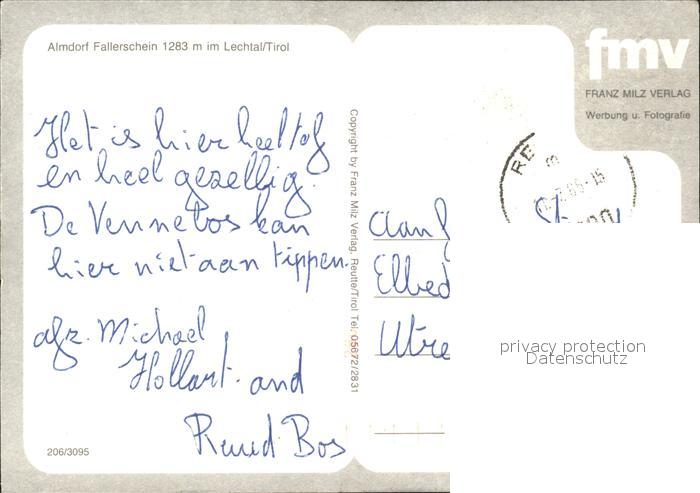 Almdorf Fallerschein 1283 m im Lechtal/Tirol
fmv
FRANZ MILZ VERLAG
Werbung u. Fotografie
Het is hier heel tof
en heel gezellig.
De Vennebos kan
hier niet aan tippen.
afz. Michael
Hollart. and
Ruud Bos
206/3095
Copyright by Franz Milz Verlag, Reutte/Tirol Tel. 05672/2831
Aan
Utre
privacy protection
Datenschutz